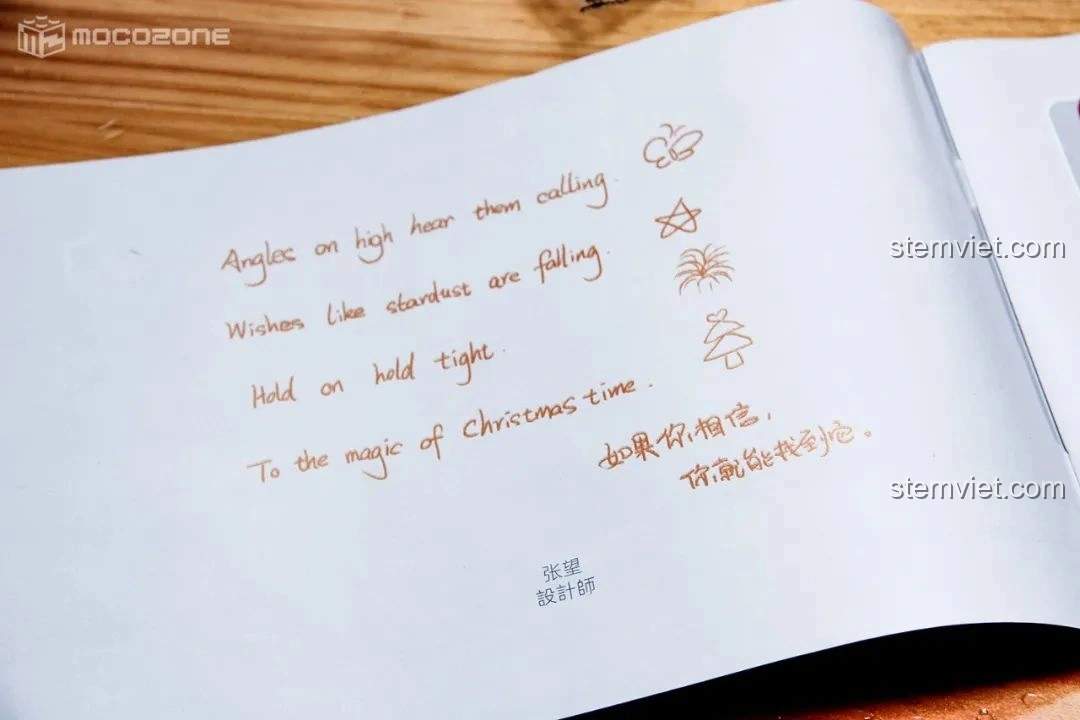 MOCOZONE
Angles on high hear them calling.
Wishes like stardust are falling.
Hold on hold tight.
To the magic of Christmas time.
如果你相信，
你就能找到它。
张望
設計師
stemviet.com
stemviet.com